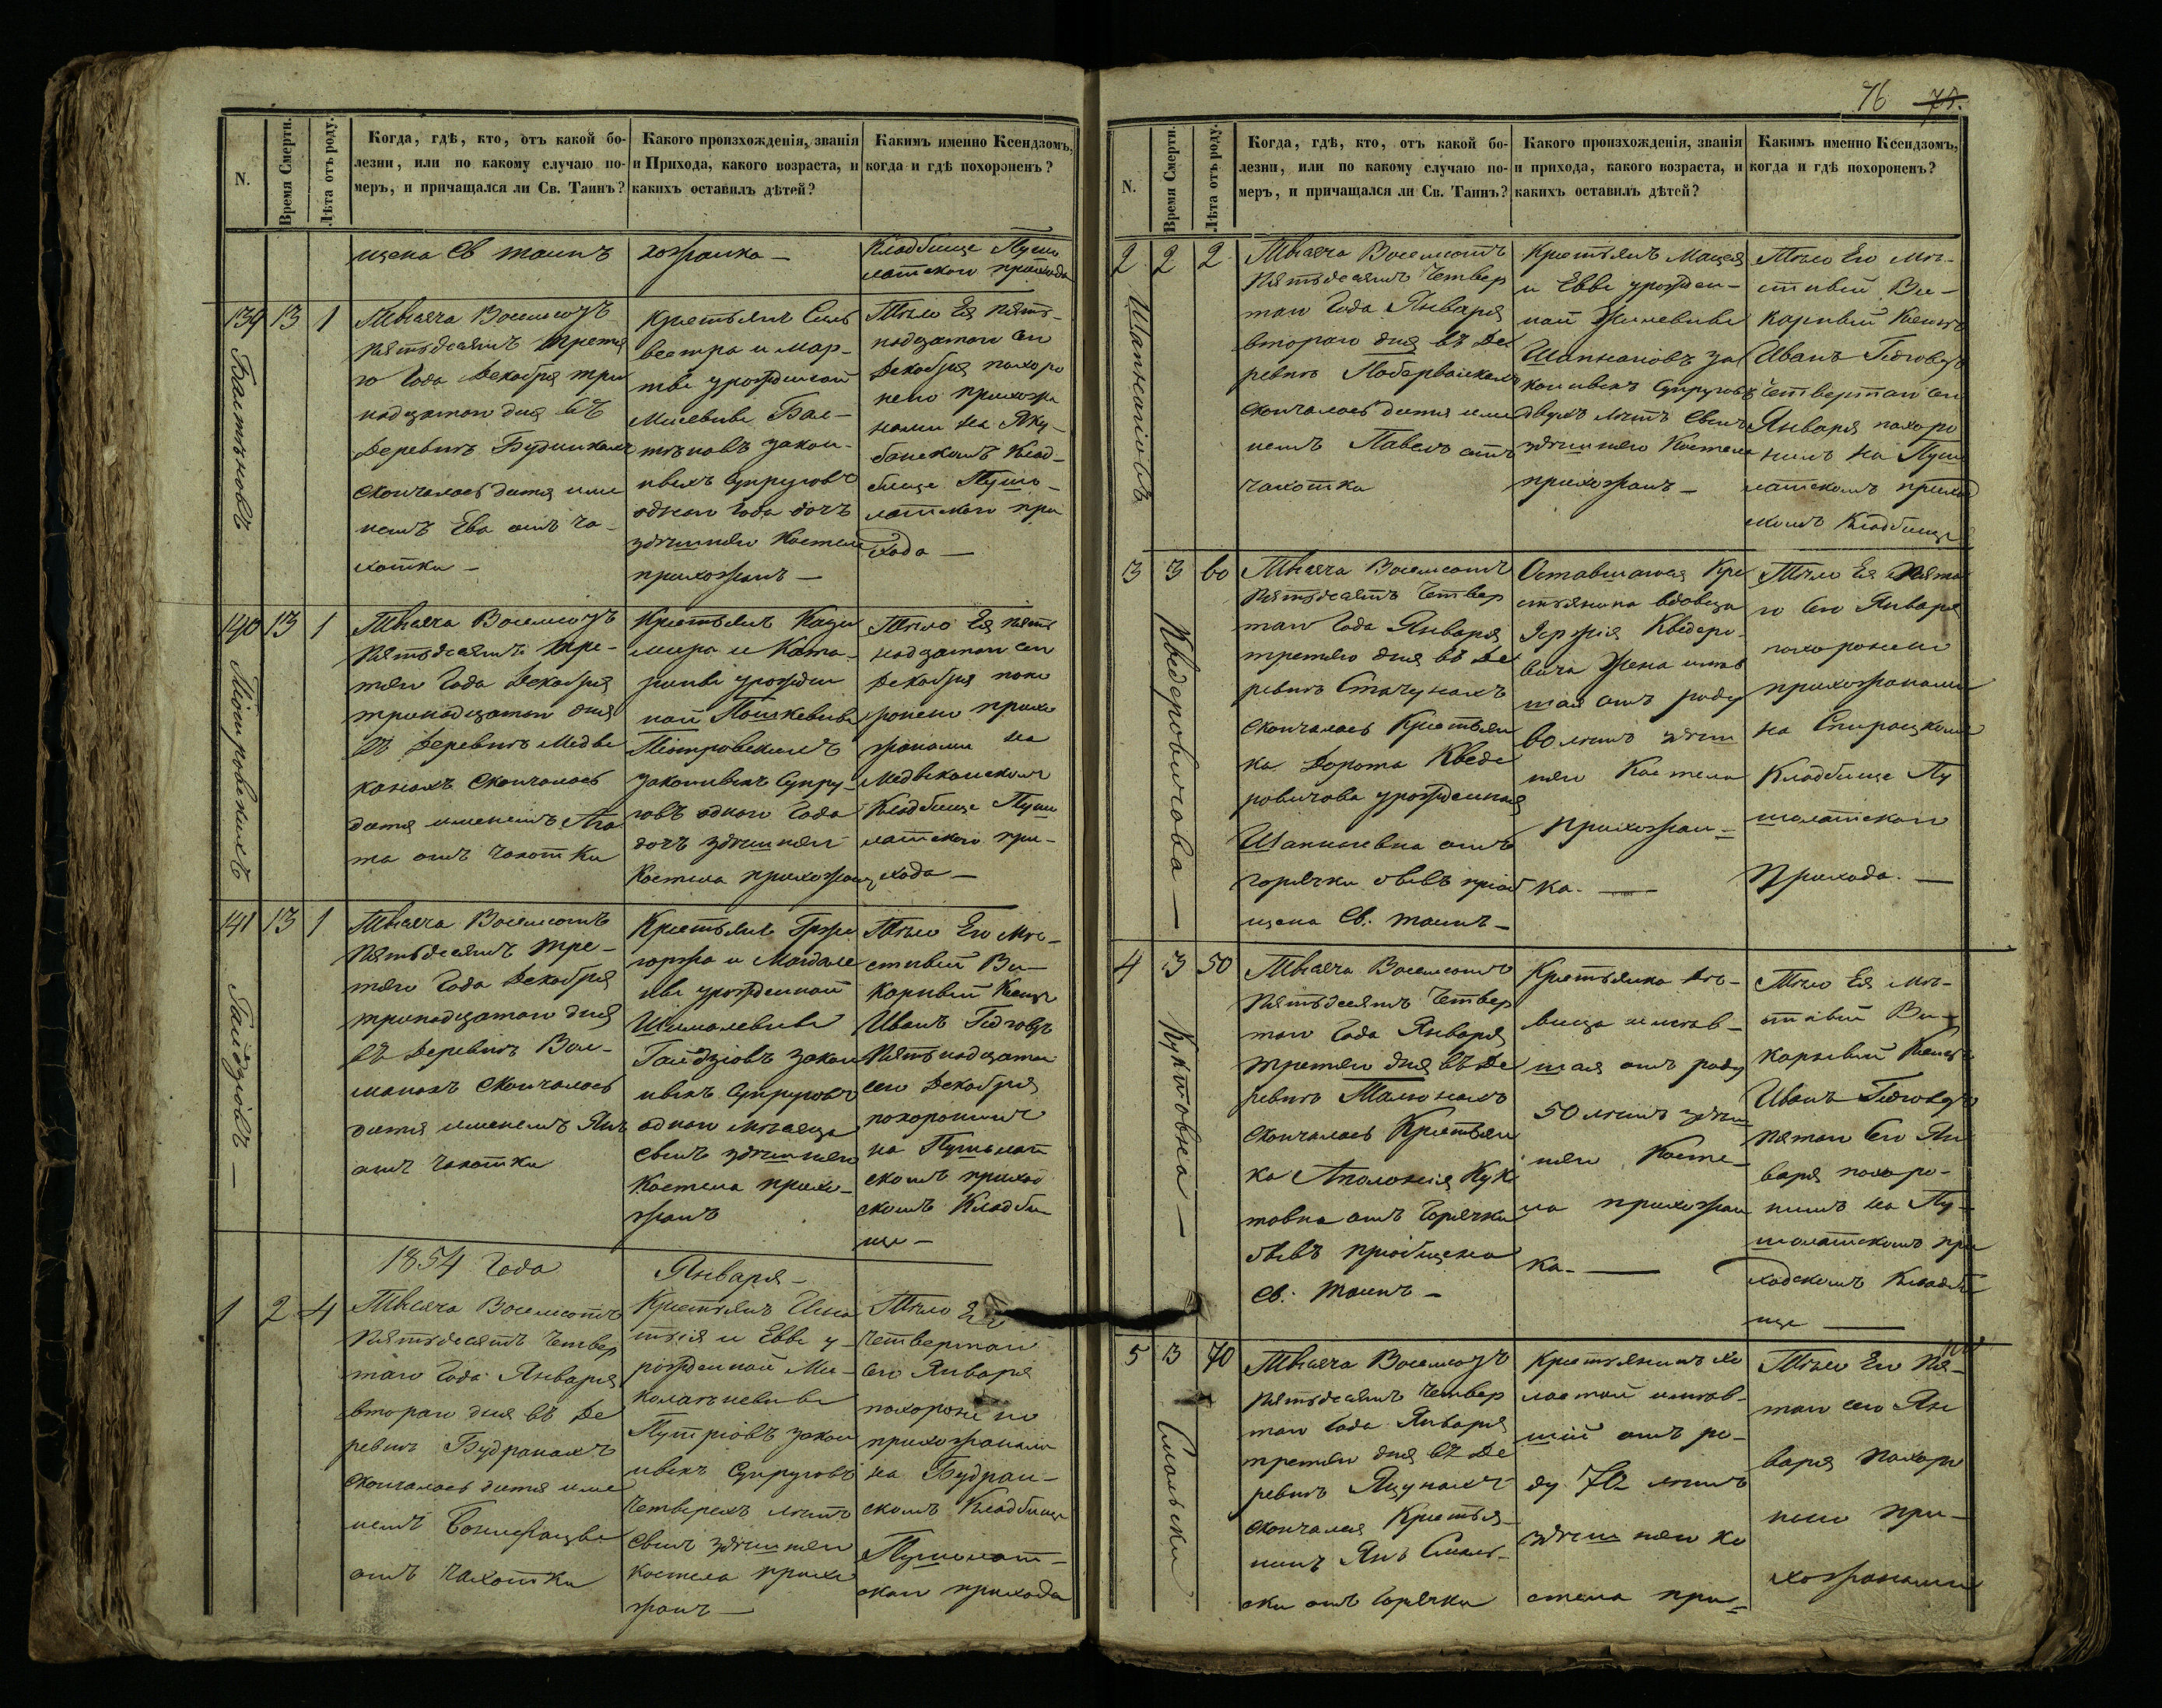 N.
Время Смерти.
Лѣта отъ роду.
Когда, гдѣ, кто, отъ какой бо-
лезни, или по какому случаю по-
меръ, и причащался ли Св. Таинъ?
Какого произхожденія, званія
и Прихода, какого возраста, и
какихъ оставилъ дѣтей?
Какимъ именно Ксендзомъ,
когда и гдѣ похороненъ?
щена Св таинъ
хожанка —
Кладбище Пушо
латскаго прихода
139 13 1
Тысяча Восемсотъ
пятьдесятъ третя
го Года Декабря три
надцатаго дня въ
Деревнѣ Будникахъ
скончалось дитя име
немъ Ева отъ ча-
хотки —
Крестьянъ Силь
вестра и Мар-
ты урожденной
одного Года дочь
здѣшняго Костела
прихожанъ —
Тѣло Ея пять-
надцатаго сего
Декабря похоро
нено прихожа
нами на Яку-
банскомъ Клад-
бище Пушо-
латскаго при
хода —
140 13 1
Піотровскихъ
Тысяча Восемсотъ
пятьдесятъ тре-
тяго Года Декабря
тринадцатаго дня
въ Деревнѣ Медве
канахъ скончалось
дитя именемъ Ага
та отъ чахотки
Крестьянъ Кази
мира и Ката-
рины урожден
ной Пошкевичъ
Піотровскихъ
законныхъ Супру-
говъ одного Года
дочь здѣшняго
Костела прихожанъ
Тѣло Ея пять
надцатаго сего
Декабря похо
ронено прихо
жанами на
Медвеканскомъ
Кладбище Пушо
латскаго при-
хода —
141 13 1
Гайдзіовъ —
Тысяча Восемсотъ
пятьдесятъ тре-
тяго Года Декабря
тринадцатаго дня
въ Деревнѣ Вои-
манахъ скончалось
дитя именемъ Янъ
отъ чахотки
Крестьянъ Гржи
горжа и Магдале
ны урожденной
Гайдзіовъ закон
ныхъ Супруговъ
одного мѣсяца
сынъ здѣшняго
Костела прихо-
жанъ
Тѣло Его мѣ-
стный Ви-
карный Ксендзъ
Иванъ Гедговдъ
пятьнадцатаго
сего Декабря
похоронилъ
на Пушолат
скомъ приход
скомъ Кладби-
ще —
1854 Года Января —
1 2 4
Тысяча Восемсотъ
пятьдесятъ четвер
таго Года Января
втораго дня въ Де
ревнѣ Будранахъ
скончалось дитя име
немъ Бонифацы
отъ чахотки
Крестьянъ Игна
тыя и Еввы у-
рожденной Ми-
Путріовъ закон
ныхъ Супруговъ
четверехъ лѣтъ
сынъ здѣшняго
Костела прихо
жанъ —
Тѣло Его
четвертаго
сего Января
похоронено
прихожанами
на Будран-
скомъ Кладбище
Пушолат-
скаго прихода
76 75.
N.
Время Смерти.
Лѣта отъ роду.
Когда, гдѣ, кто, отъ какой бо-
лезни, или по какому случаю по-
меръ, и причащался ли Св. Таинъ?
Какого произхожденія, званія
и прихода, какого возраста, и
какихъ оставилъ дѣтей?
Какимъ именно Ксендзомъ,
когда и гдѣ похороненъ?
2 2 2
Тысяча Восемсотъ
пятьдесятъ Четвер
таго Года Января
втораго дня въ Де
скончалось дитя име
немъ Павелъ отъ
чахотки
Крестьянъ Мацея
и Еввы урожден-
ной
законныхъ Супруговъ
двухъ лѣтъ сынъ
здѣшняго Костела
прихожанъ —
Тѣло Его мѣ-
стный Ви-
карный Ксендзъ
Иванъ Гедговдъ
четвертаго сего
Января похоро
нилъ на Пушо
латскомъ приход
скомъ Кладбище
3 3 60
Кведеровичова —
Тысяча Восемсотъ
пятьдесятъ Четвер
таго Года Января
третяго дня въ Де
ревнѣ Стачунахъ
скончалась Крестьян
ка Дорота Кведе
ровичова урожденная
отъ
горячки бывъ пріоб
щена Св. таинъ —
Оставшаяся Кре
стьянина вдовца
Іержія Кведеро-
вича жена имѣв
шая отъ роду
60 лѣтъ здѣш
няго Костела
прихожан-
ка. —
Тѣло Ея пята
го сего Января
похоронено
прихожанами
на Спиращкомъ
Кладбище Пу
шолатскаго
Прихода. —
4 3 50
Куктовна —
Тысяча Восемсотъ
пятьдесятъ Четвер
таго Года Января
третяго дня въ Де
ревнѣ Талюнахъ
скончалась Крестьян
ка Аполонія Кук
товна отъ горячки
бывъ пріобщена
Св. Таинъ —
Крестьянка дѣ-
вица имѣв-
шая отъ роду
50 лѣтъ здѣш
няго Косте-
ла прихожан
ка. —
Тѣло Ея мѣ-
стный Ви-
карный Ксендзъ
Иванъ Гедговдъ
пятаго сего Ян
варя похоро-
нилъ на Пу-
шолатскомъ при
ходскомъ Кладби
ще —
5 3 70
Смольски
Тысяча Восемсотъ
пятьдесятъ четвер
таго Года Января
третяго дня въ Де
ревнѣ Яцунахъ
скончался Крестья-
нинъ Янъ Смоль-
ски отъ горячки
Крестьянинъ хо
лостой имѣв-
шій отъ ро-
ду 70 лѣтъ
здѣшняго Ко
стела при-
Тѣло Его пя-
таго сего Ян
варя похоро
нено при-
хожанами